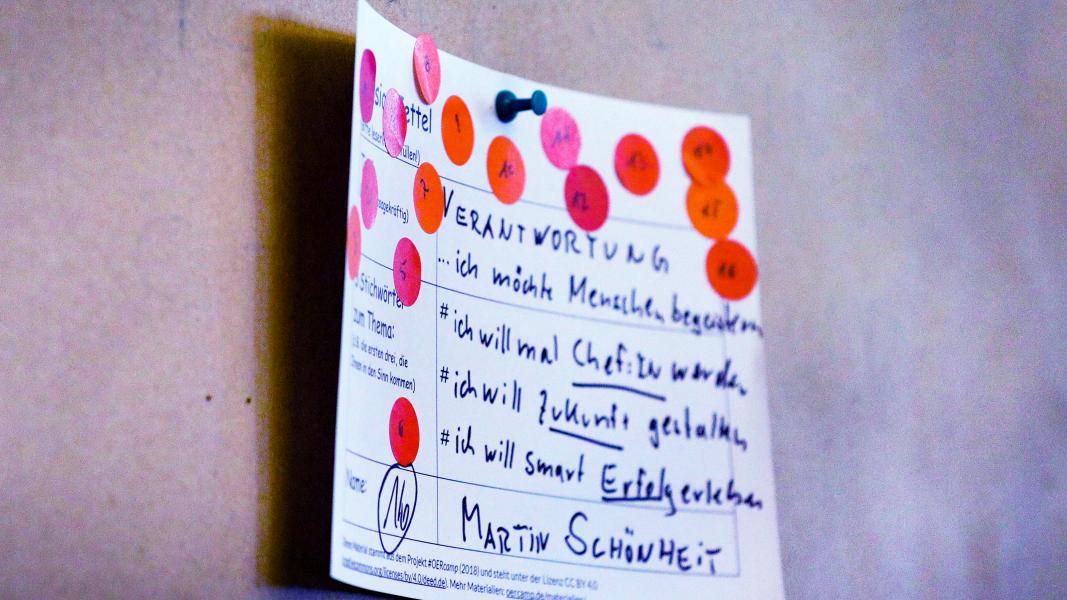 ettel
üllen!)
sagekräftig)
VERANTWORTUNG
... ich möchte Menschen begeistern
Stichwörter
zum Thema:
(z.B. die ersten drei, die
Ihnen in den Sinn kommen)
# ich will mal Chef:in werden
# ich will Zukunft gestalten
# ich will smart Erfolg erleben
Name:
MARTIN SCHÖNHEIT
Dieses Material stammt aus dem Projekt #OERcamp (2018) und steht unter der Lizenz CC BY 4.0
licenses/by/4.0/deed.de). Mehr Materialien: oercamp.de/materialien
8
9
10
11
12
13
14
15
16
7
5
6